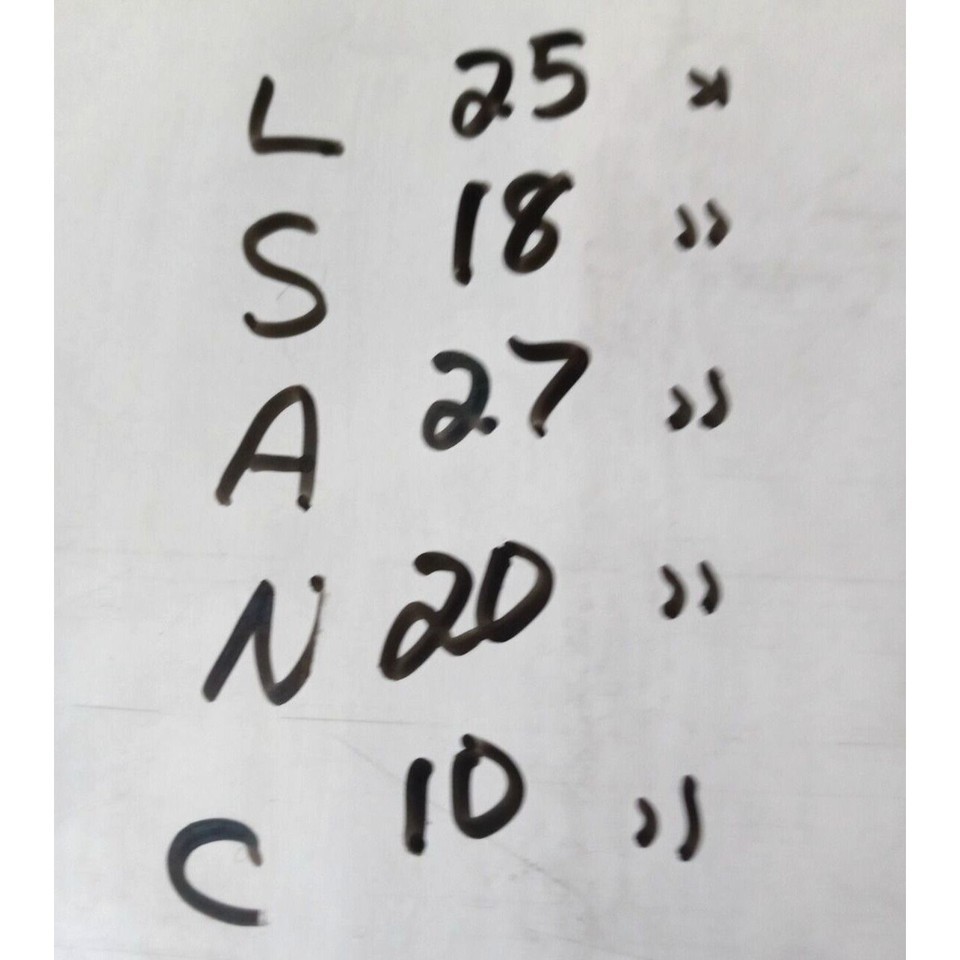 L 25 "
S 18 "
A 27 "
N 20 "
C 10 "